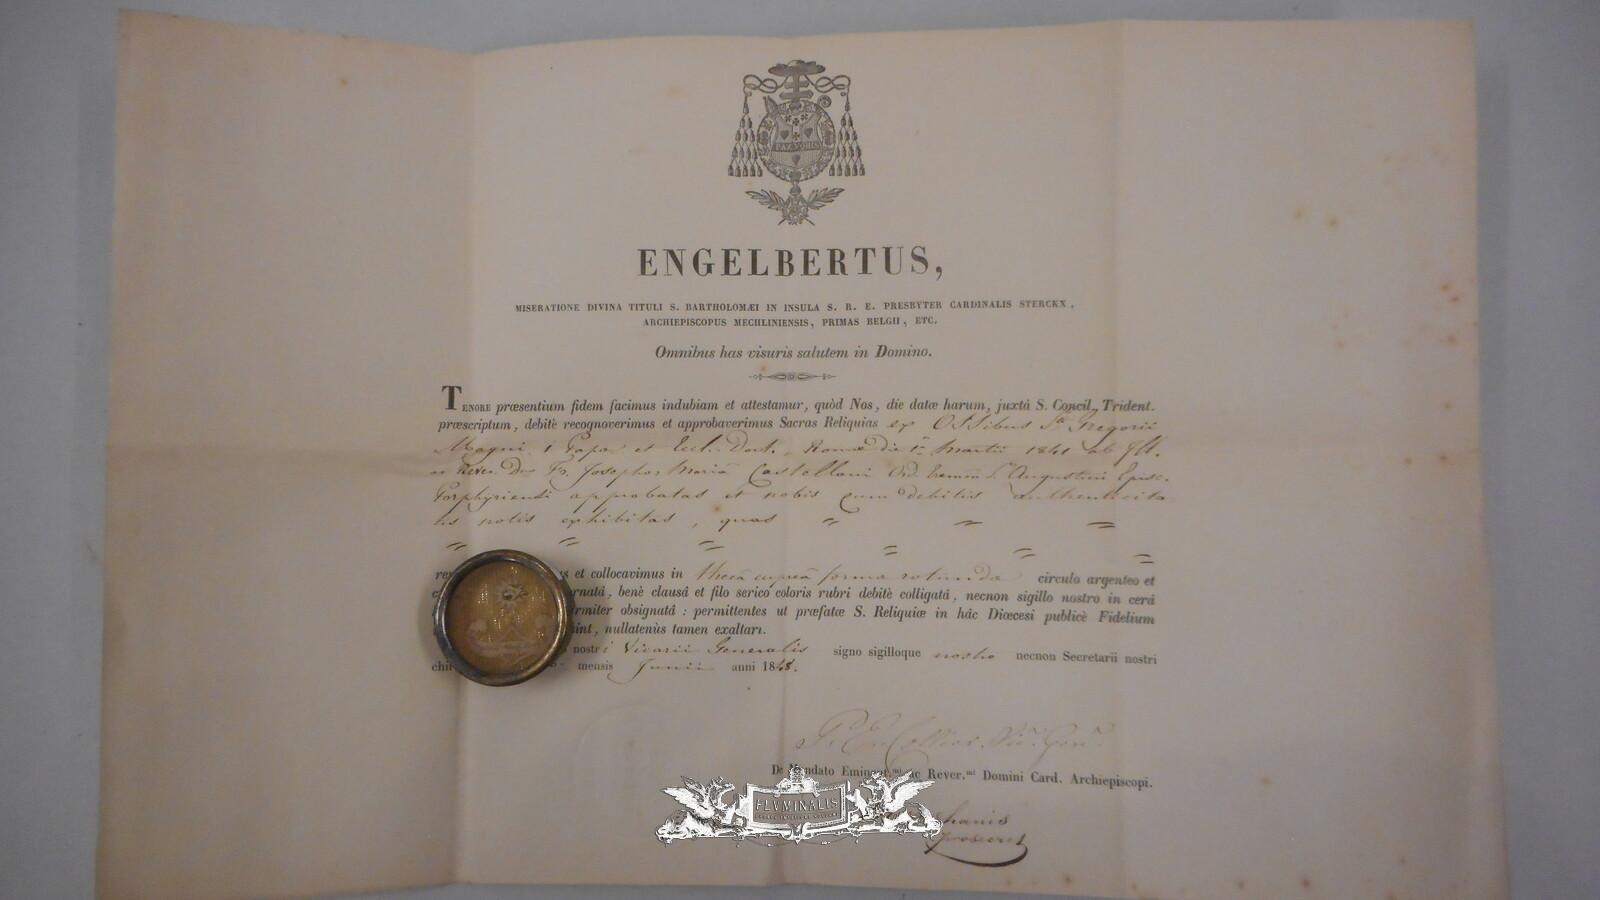 PAX VOBIS
ENGELBERTUS,
MISERATIONE DIVINA TITULI S. BARTHOLOMÆI IN INSULA S. R. E. PRESBYTER CARDINALIS STERCKX,
ARCHIEPISCOPUS MECHLINIENSIS, PRIMAS BELGII, ETC.
Omnibus has visuris salutem in Domino.
TENORE præsentium fidem facimus indubiam et attestamur, quòd Nos, die datæ harum, juxtà S. Concil. Trident.
præscriptum, debitè recognoverimus et approbaverimus Sacras Reliquias ex Ossibus Sti Gregorii
Magni 1 Papæ et Eccl. Doct. Romæ die 1a Martii 1841 ab Ill.
ac Rever. Dno Fr. Josepho Mariâ Castellani Ord. Erem. S. Augustini Episc.
Porphyriensi approbatas et nobis cum debitis authenticita
tis notis exhibitas, quas
et collocavimus in thecâ cupreâ formæ rotundæ circulo argenteo et
benè clausâ et filo serico coloris rubri debitè colligatâ, necnon sigillo nostro in cerâ
obsignatâ : permittentes ut præfatæ S. Reliquiæ in hâc Diœcesi publicè Fidelium
nullatenùs tamen exaltari.
nostri Vicarii Generalis signo sigilloque nostro necnon Secretarii nostri
mensis Junii anni 1848.
Vic. Gen.
De Mandato ac Rever.mi Domini Card. Archiepiscopi.
prosecret
FLVMINALIS